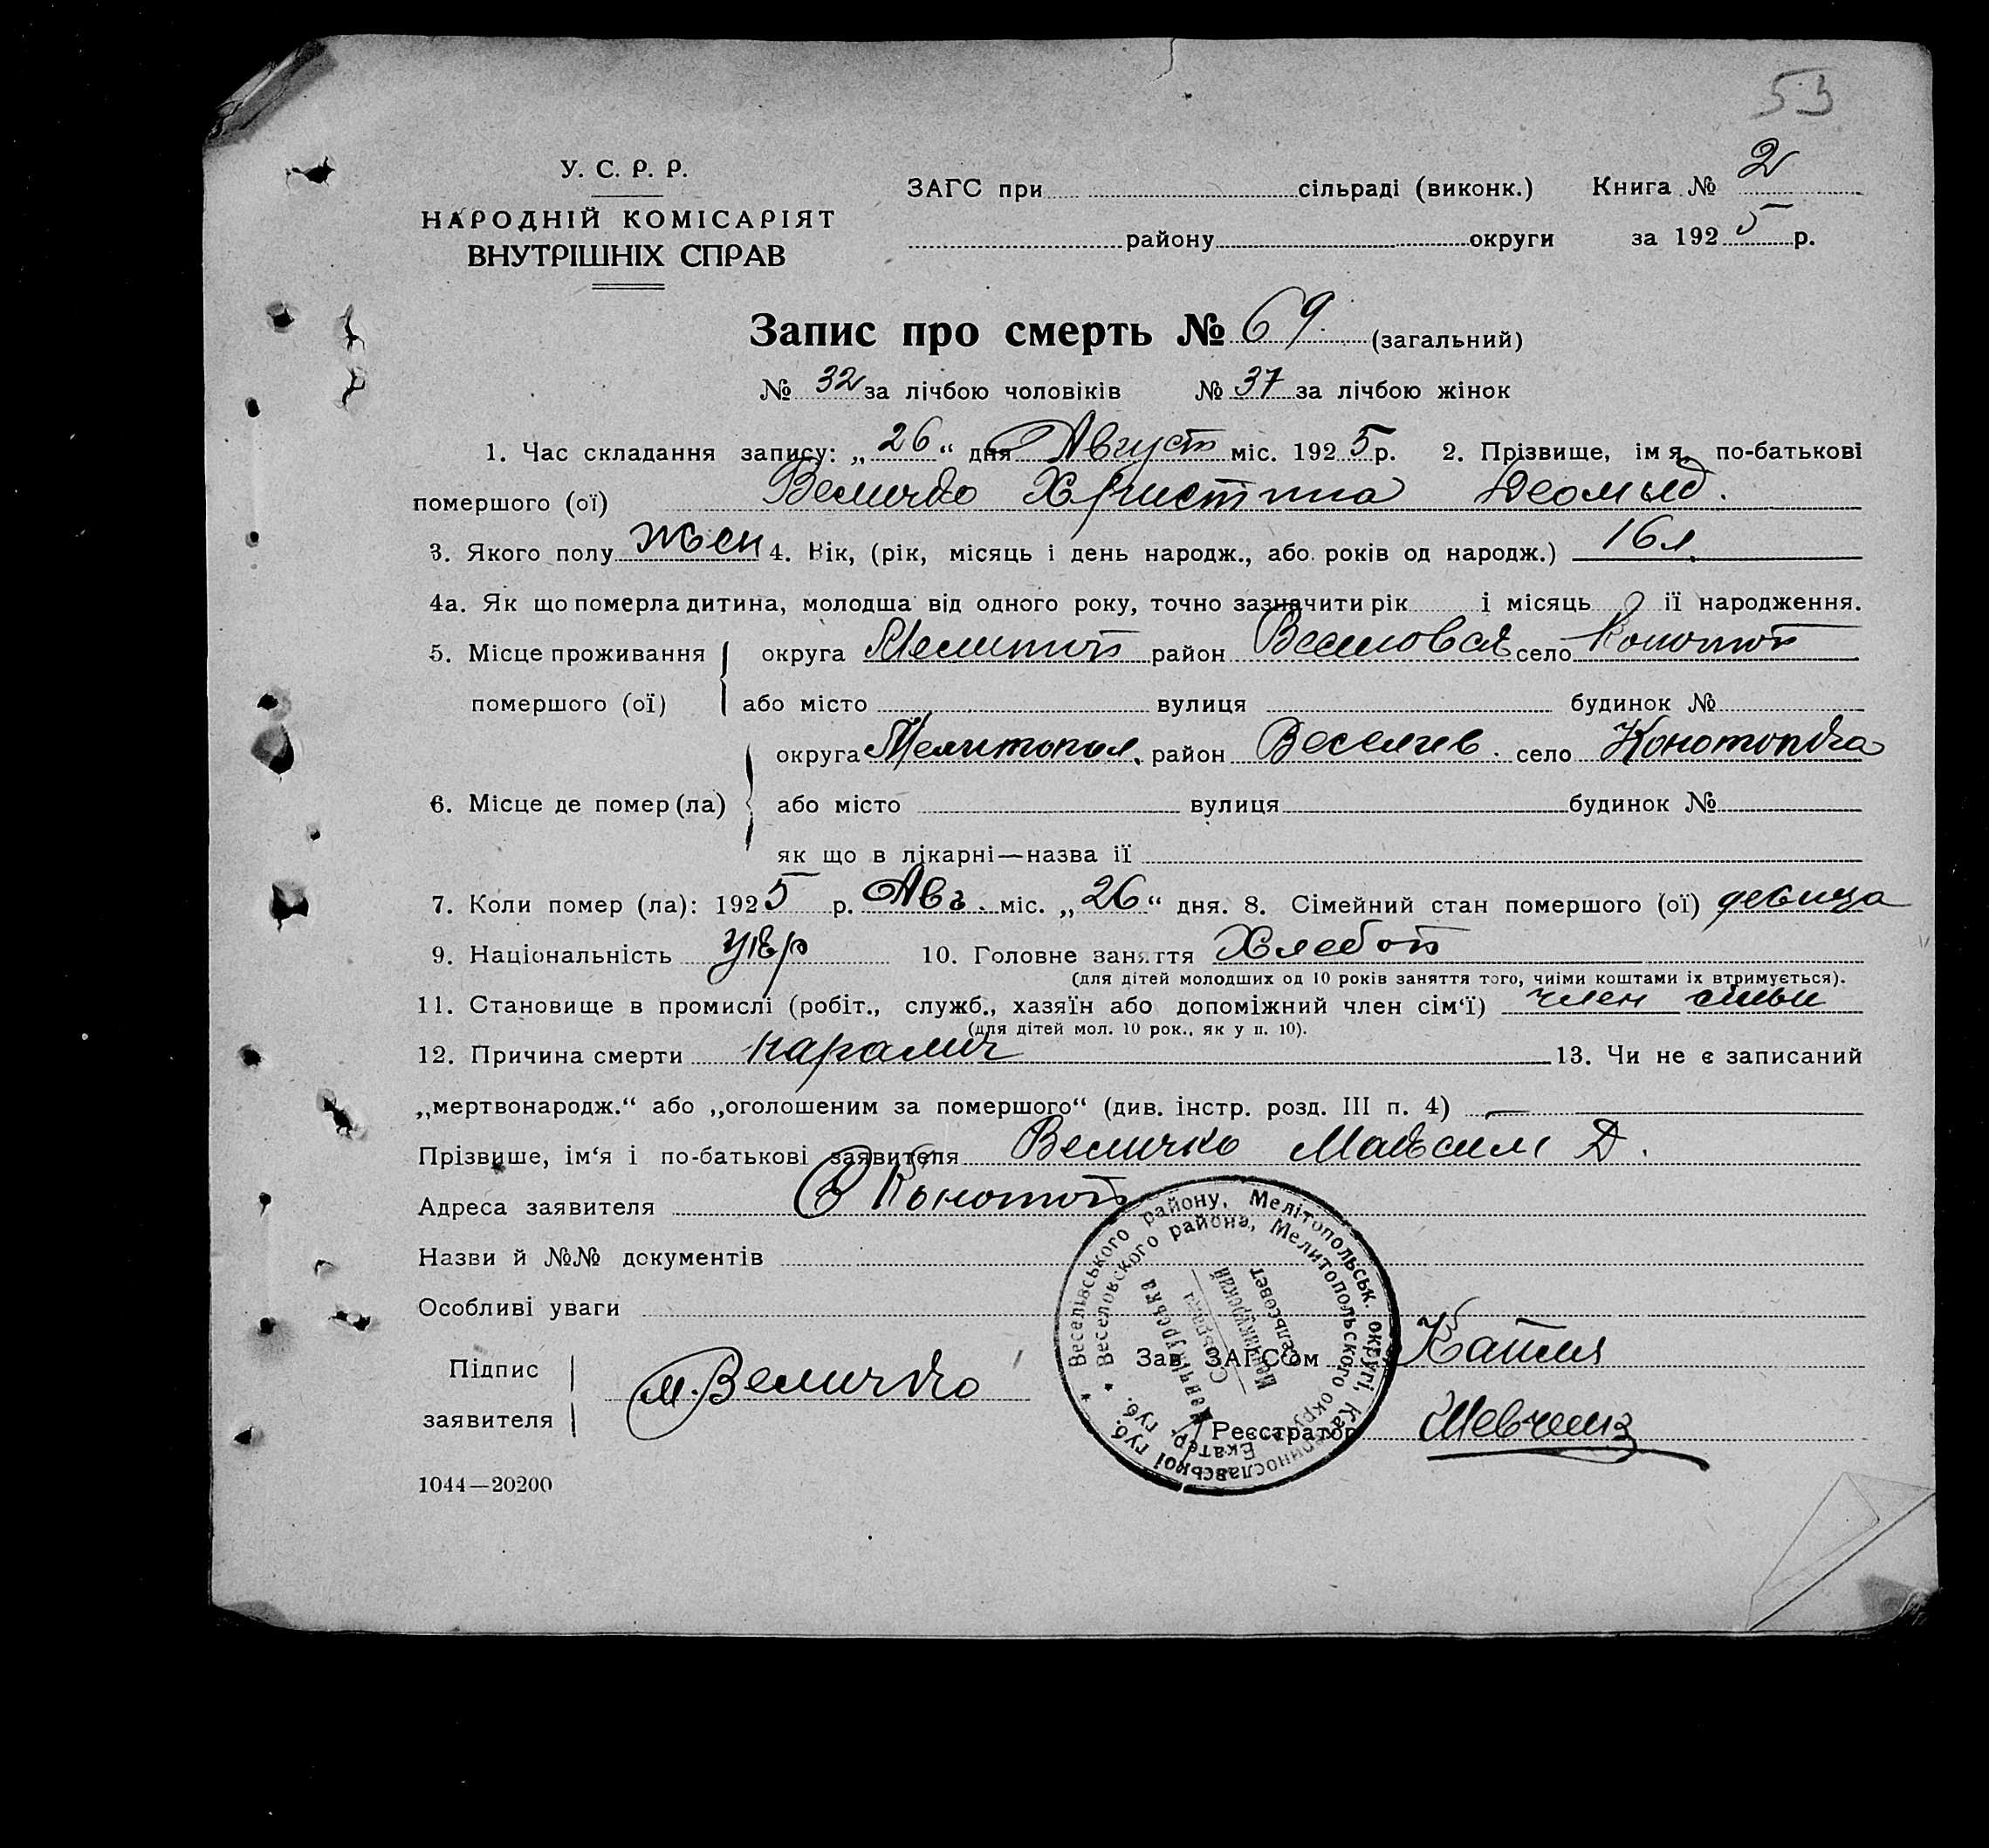 53
У. С. Р. Р.
НАРОДНІЙ КОМІСАРІЯТ
ВНУТРІШНІХ СПРАВ
ЗАГС при сільраді (виконк.) Книга № 2
району округи за 1925 р.
Запис про смерть № 69. (загальний)
№ 32 за лічбою чоловіків № 37 за лічбою жінок
1. Час складання запису: „26“ дня Август міс. 1925 р. 2. Прізвище, імя, по-батькові
помершого (ої) Величко Христина Деомид.
3. Якого полу жен 4. Вік, (рік, місяць і день народж., або років од народж.) 16 л.
4а. Як що померла дитина, молодша від одного року, точно зазначити рік і місяць її народження.
5. Місце проживання округа Мелитоп район село Конотоп
помершого (ої) або місто вулиця будинок №
округа Мелитопол. район Веселив. село Конотопка
6. Місце де помер (ла) або місто вулиця будинок №
як що в лікарні—назва її
7. Коли помер (ла): 1925 р. Авг. міс. „26“ дня. 8. Сімейний стан помершого (ої) девица
9. Національність укр 10. Головне заняття Хлебоп
(для дітей молодших од 10 років заняття того, чиїми коштами їх втримується).
11. Становище в промислі (робіт., служб., хазяїн або допоміжний член сім‘ї) член симьи
(для дітей мол. 10 рок., як у п. 10).
12. Причина смерти паралич 13. Чи не є записаний
„мертвонародж.“ або „оголошеним за помершого“ (див. інстр. розд. III п. 4) —
Прізвише, ім‘я і по-батькові заявителя Величко Максим Д.
Адреса заявителя Конотоп
Назви й №№ документів
Особливі уваги
Підпис
заявителя М. Величко
Зав. ЗАГСом
Реєстратор Шевченко
Весельвського району, Мелітопольськ. округі, Катеринославської губ.
Веселовского района, Мелитопольского округа Екатер. губ.
Менчикурська Сільрада
Менчикурский сельсовет
1044—20200